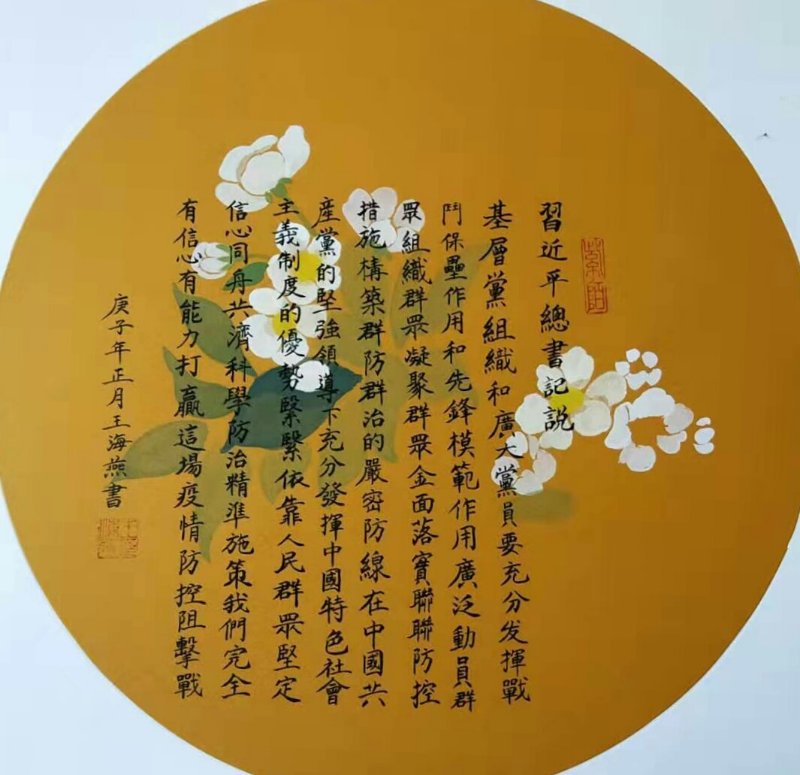 習近平總書記説
基層黨組織和廣大黨員要充分发揮戰
鬥保壘作用和先鋒模範作用廣泛動員群
眾組織群眾凝聚群眾金面落實聯聯防控
措施構築群防群治的嚴密防線在中國共
産黨的堅強領導下充分發揮中國特色社會
主義制度的優勢緊緊依靠人民群眾堅定
信心同舟共濟科學防治精準施策我們完全
有信心有能力打贏這場疫情防控阻擊戰
庚子年正月王海燕書